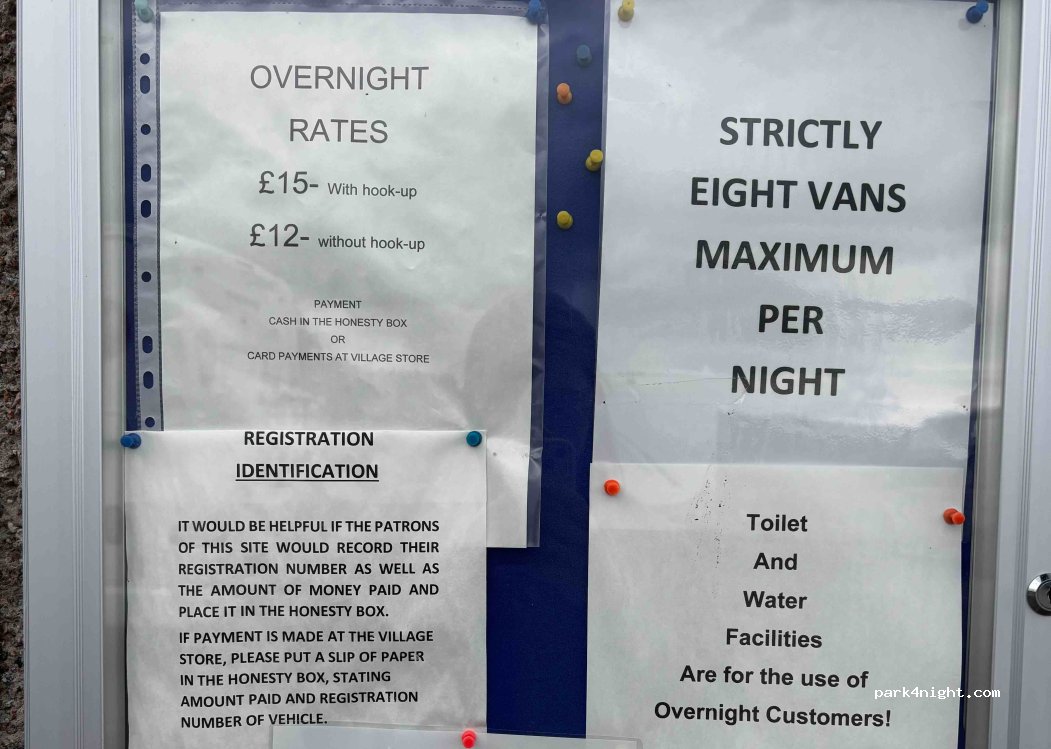 OVERNIGHT
RATES
£15- With hook-up
£12- without hook-up
PAYMENT
CASH IN THE HONESTY BOX
OR
CARD PAYMENTS AT VILLAGE STORE
REGISTRATION
IDENTIFICATION
IT WOULD BE HELPFUL IF THE PATRONS
OF THIS SITE WOULD RECORD THEIR
REGISTRATION NUMBER AS WELL AS
THE AMOUNT OF MONEY PAID AND
PLACE IT IN THE HONESTY BOX.
IF PAYMENT IS MADE AT THE VILLAGE
STORE, PLEASE PUT A SLIP OF PAPER
IN THE HONESTY BOX, STATING
AMOUNT PAID AND REGISTRATION
NUMBER OF VEHICLE.
STRICTLY
EIGHT VANS
MAXIMUM
PER
NIGHT
Toilet
And
Water
Facilities
Are for the use of
Overnight Customers!
park4night.com